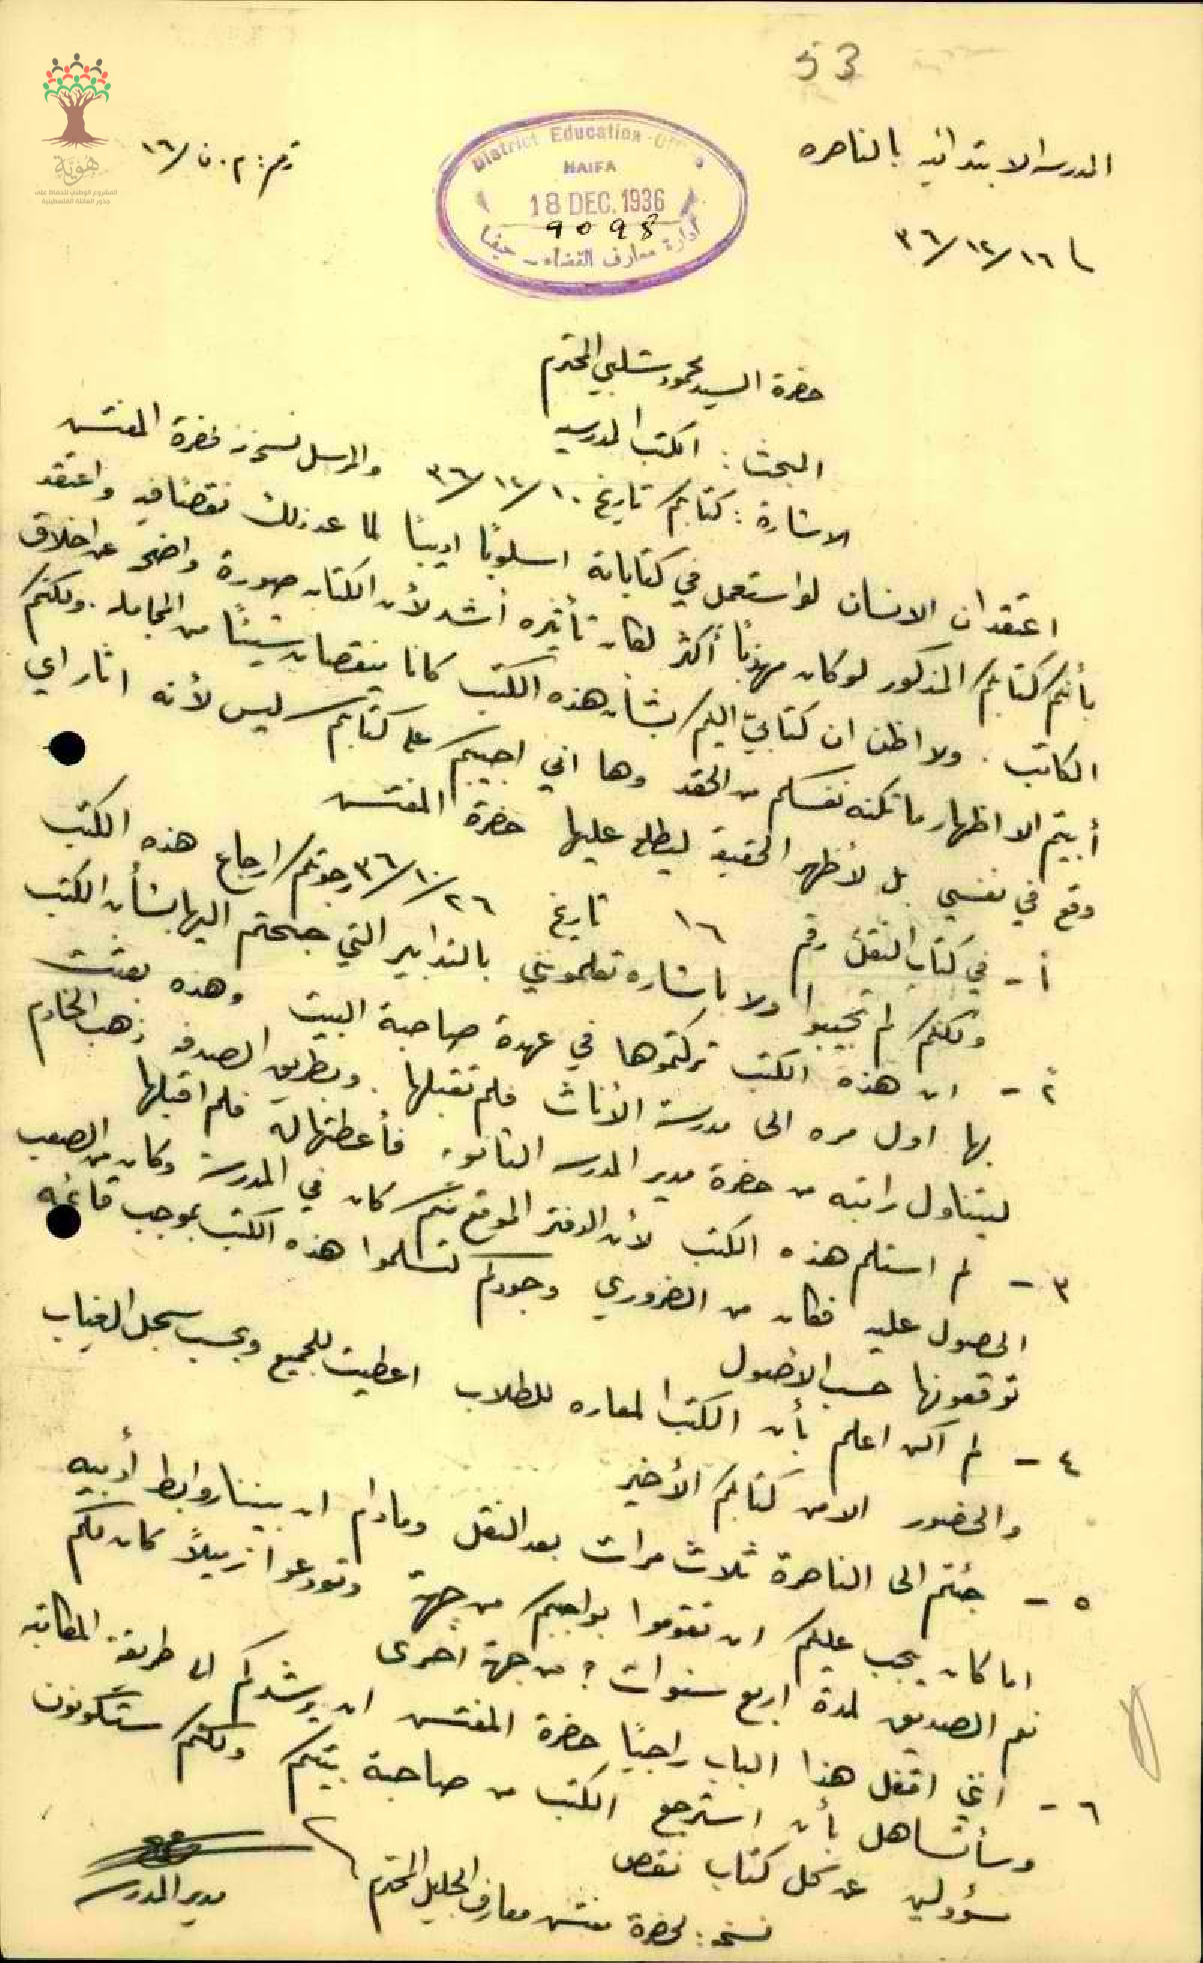 53
المدرسة الابتدائية بالناصره
رقم: م.ن/١٦
District Education Office
HAIFA
18 DEC. 1936
9098
ادارة معارف القضاء - حيفا
هوية
المشروع الوطني للحفاظ على
جذور العائلة الفلسطينية
٣٦/١٢/١٦
حضرة السيد محمود شلبي المحترم
البحث: الكتب المدرسيه
الاشارة: كتابكم تاريخ ٣٦/١٢/١٠ والمرسل نسخه لحضرة المفتش
اعتقد ان الانسان لو استعمل في كتاباته اسلوبًا ادبيًا لما عد ذلك نقصًا فيه واعتقد
بأنكم كتابكم المذكور لو كان مهذبًا أكثر لكان تأثيره أشد لأن الكتاب صورة واضحة عن اخلاق
الكاتب. ولا اظن ان كتابيّ اليكم بشأن هذه الكتب كانا ينقصان شيئًا من المجامله. ولكنكم
أبيتم الا اظهار ما تكنه نفسكم من الحقد وها اني اجيبكم على كتابكم ليس لأنه اثار اي
وقع في نفسي بل لأظهر الحقيقة ليطلع عليها حضرة المفتش
١ - في كتاب النقل رقم ١٦ تاريخ ٣٦/١٠/٢٦ رجوتكم ارجاع هذه الكتب
ولكنكم لم تجيبوا ولا باشاره تعلموني بالتدابير التي جنحتم اليها بشأن الكتب
٢ - ان هذه الكتب تركتموها في عهدة صاحبة البيت وهذه بعثت
بها اول مره الى مدرسة الأناث فلم تقبلها. وبطريق الصدفه ذهب الخادم
ليتناول راتبه من حضرة مدير المدرسه الثانويه فأعطتها له فلم اقبلها
٣ - لم استلم هذه الكتب لأن الدفتر الموقع منكم كان في المدرسة وكان من الصعب
الحصول عليه فكان من الضروري وجودكم لتسلموا هذه الكتب بموجب قائمه
توقعونها حسب الاصول
٤ - لم اكن اعلم بأن الكتب المعاره للطلاب اعطيت للجميع وبحسب سجل الغياب
والحضور الا من كتابكم الأخير
٥ - جئتم الى الناصرة ثلاث مرات بعد النقل وما دام ان بيننا روابط أدبيه
اما كان يجب عليكم ان تقوموا بواجبكم من جهة وتودعوا زميلاً كان لكم
نعم الصديق لمدة اربع سنوات؟ من جهة أخرى
٦ - انني اقفل هذا الباب راجيًا حضرة المفتش ان يرشدكم الى طريقة المكاتبه
وسأتساهل بأن استرجع الكتب من صاحبة بيتكم ولكنكم ستكونون
مسؤولين عن كل كتاب نقص
مدير المدرسه
نسخه: لحضرة مفتش معارف الجليل المحترم